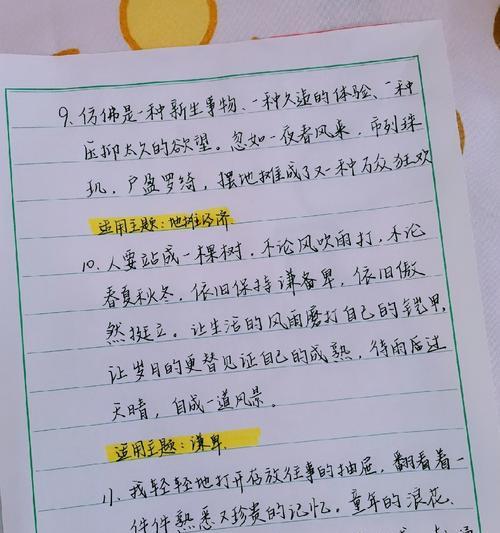 9、仿佛是一种新生事物、一种久违的体验、一种
压抑太久的欲望。忽如一夜春风来,市列珠
玑,户盈罗绮,摆地摊成了又一种万众狂欢
适用主题:地摊经济
10、人要站成一棵树,不论风吹雨打,不论
春夏秋冬,依旧保持谦备卑,依旧傲
然挺立。让生活的风雨磨打自己的铠甲,
让岁月的更替见证自己的成熟,待雨后过
天晴,自成一道风景。
适用主题:谦卑
11、我轻轻地打开存放往事的抽屉,翻看着一
件件熟悉又珍贵的记忆。童年的浪花、